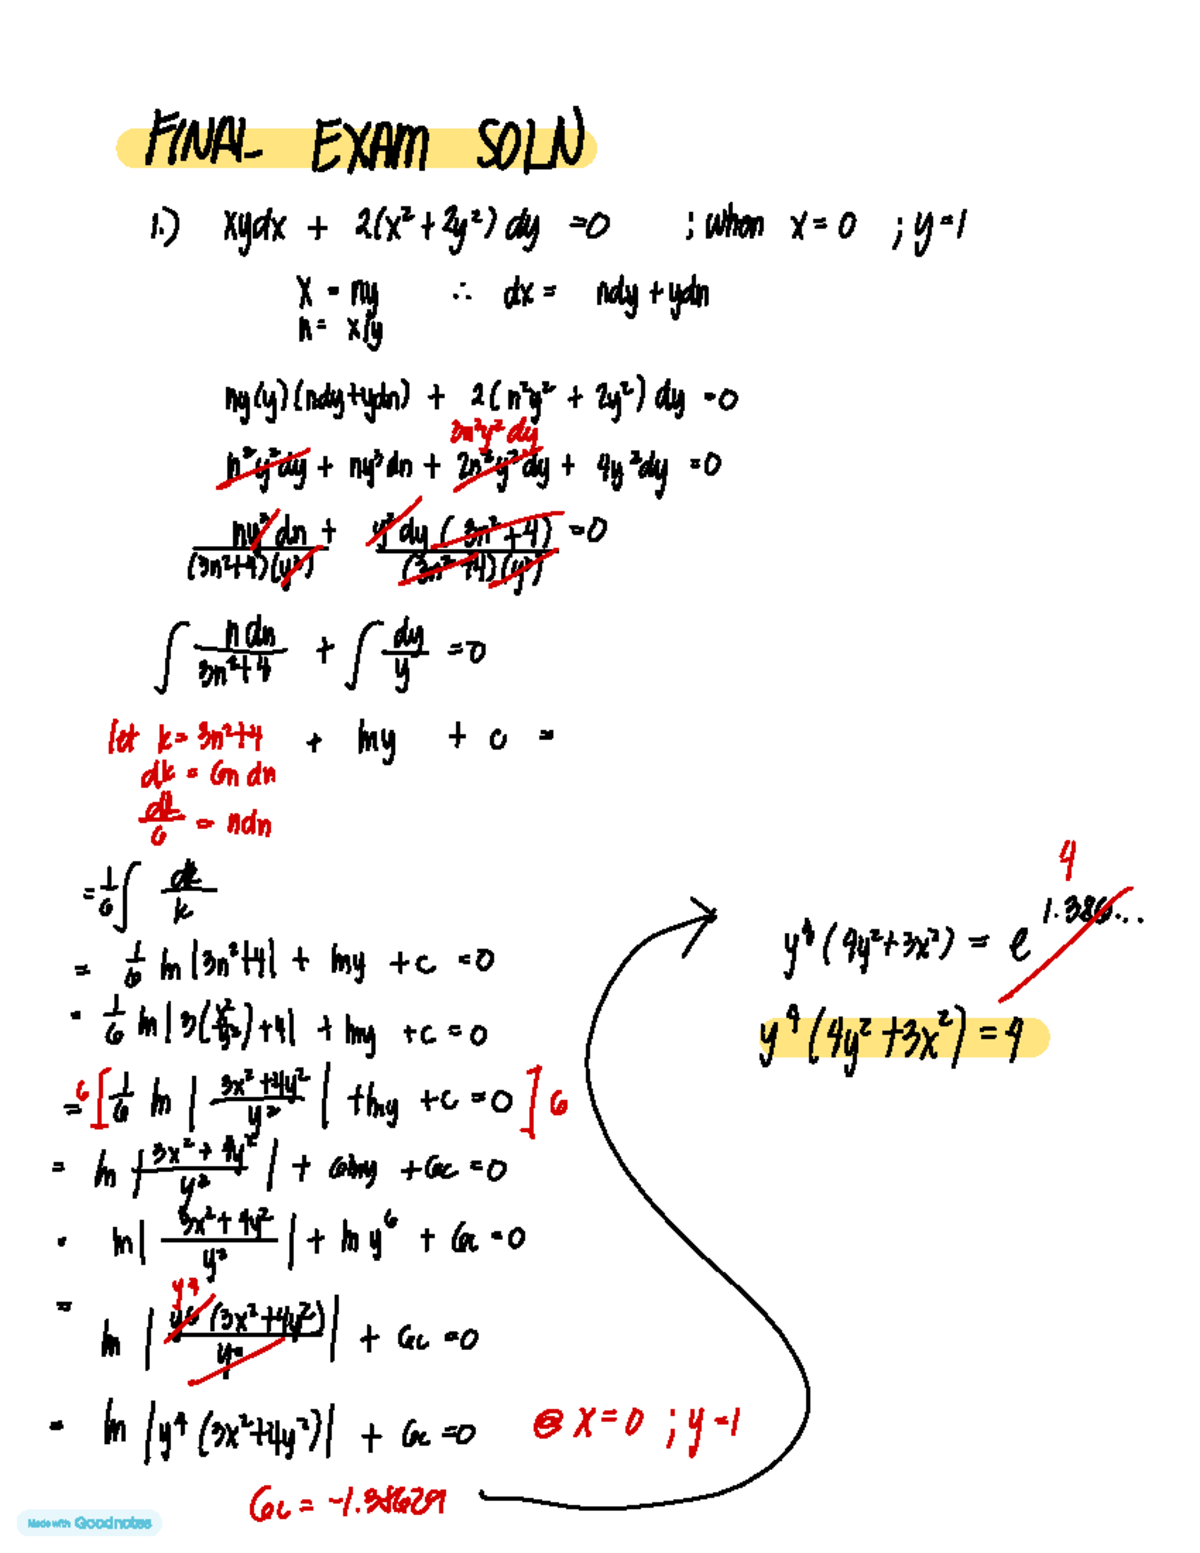 FINAL EXAM SOLN
1.) xydx + 2(x² + 2y²) dy = 0 ; when x = 0 ; y = 1
x = ny ∴ dx = ndy + ydn
n = x/y
ny(y)(ndy+ydn) + 2(n²y² + 2y²) dy = 0
3n²y² dy
n²y²dy + ny³dn + 2n²y²dy + 4y²dy = 0
ny³ dn / (3n²+4)(y³) + y² dy (3n²+4) / (3n²+4)(y³) = 0
∫ n dn / 3n²+4 + ∫ dy / y = 0
let k = 3n²+4 + lny + c =
dk = 6n dn
dk/6 = ndn
= 1/6 ∫ dk / k
= 1/6 ln |3n²+4| + lny + c = 0
= 1/6 ln | 3(x²/y²) + 4 | + lny + c = 0
= 6[ 1/6 ln | 3x²+4y² / y² | + lny + c = 0 ] 6
= ln | 3x² + 4y² / y² | + 6lny + 6c = 0
= ln | 3x² + 4y² / y² | + ln y⁶ + 6c = 0
y⁴
= ln | y⁶ (3x²+4y²) / y² | + 6c = 0
= ln | y⁴ (3x²+4y²) | + 6c = 0 @ x = 0 ; y = 1
6c = -1.38629
4
y⁴ (4y²+3x²) = e^1.386...
y⁴ (4y²+3x²) = 4
Made with Goodnotes